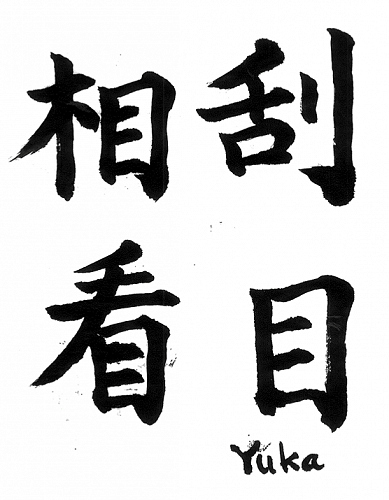 刮目
相看
Yuka